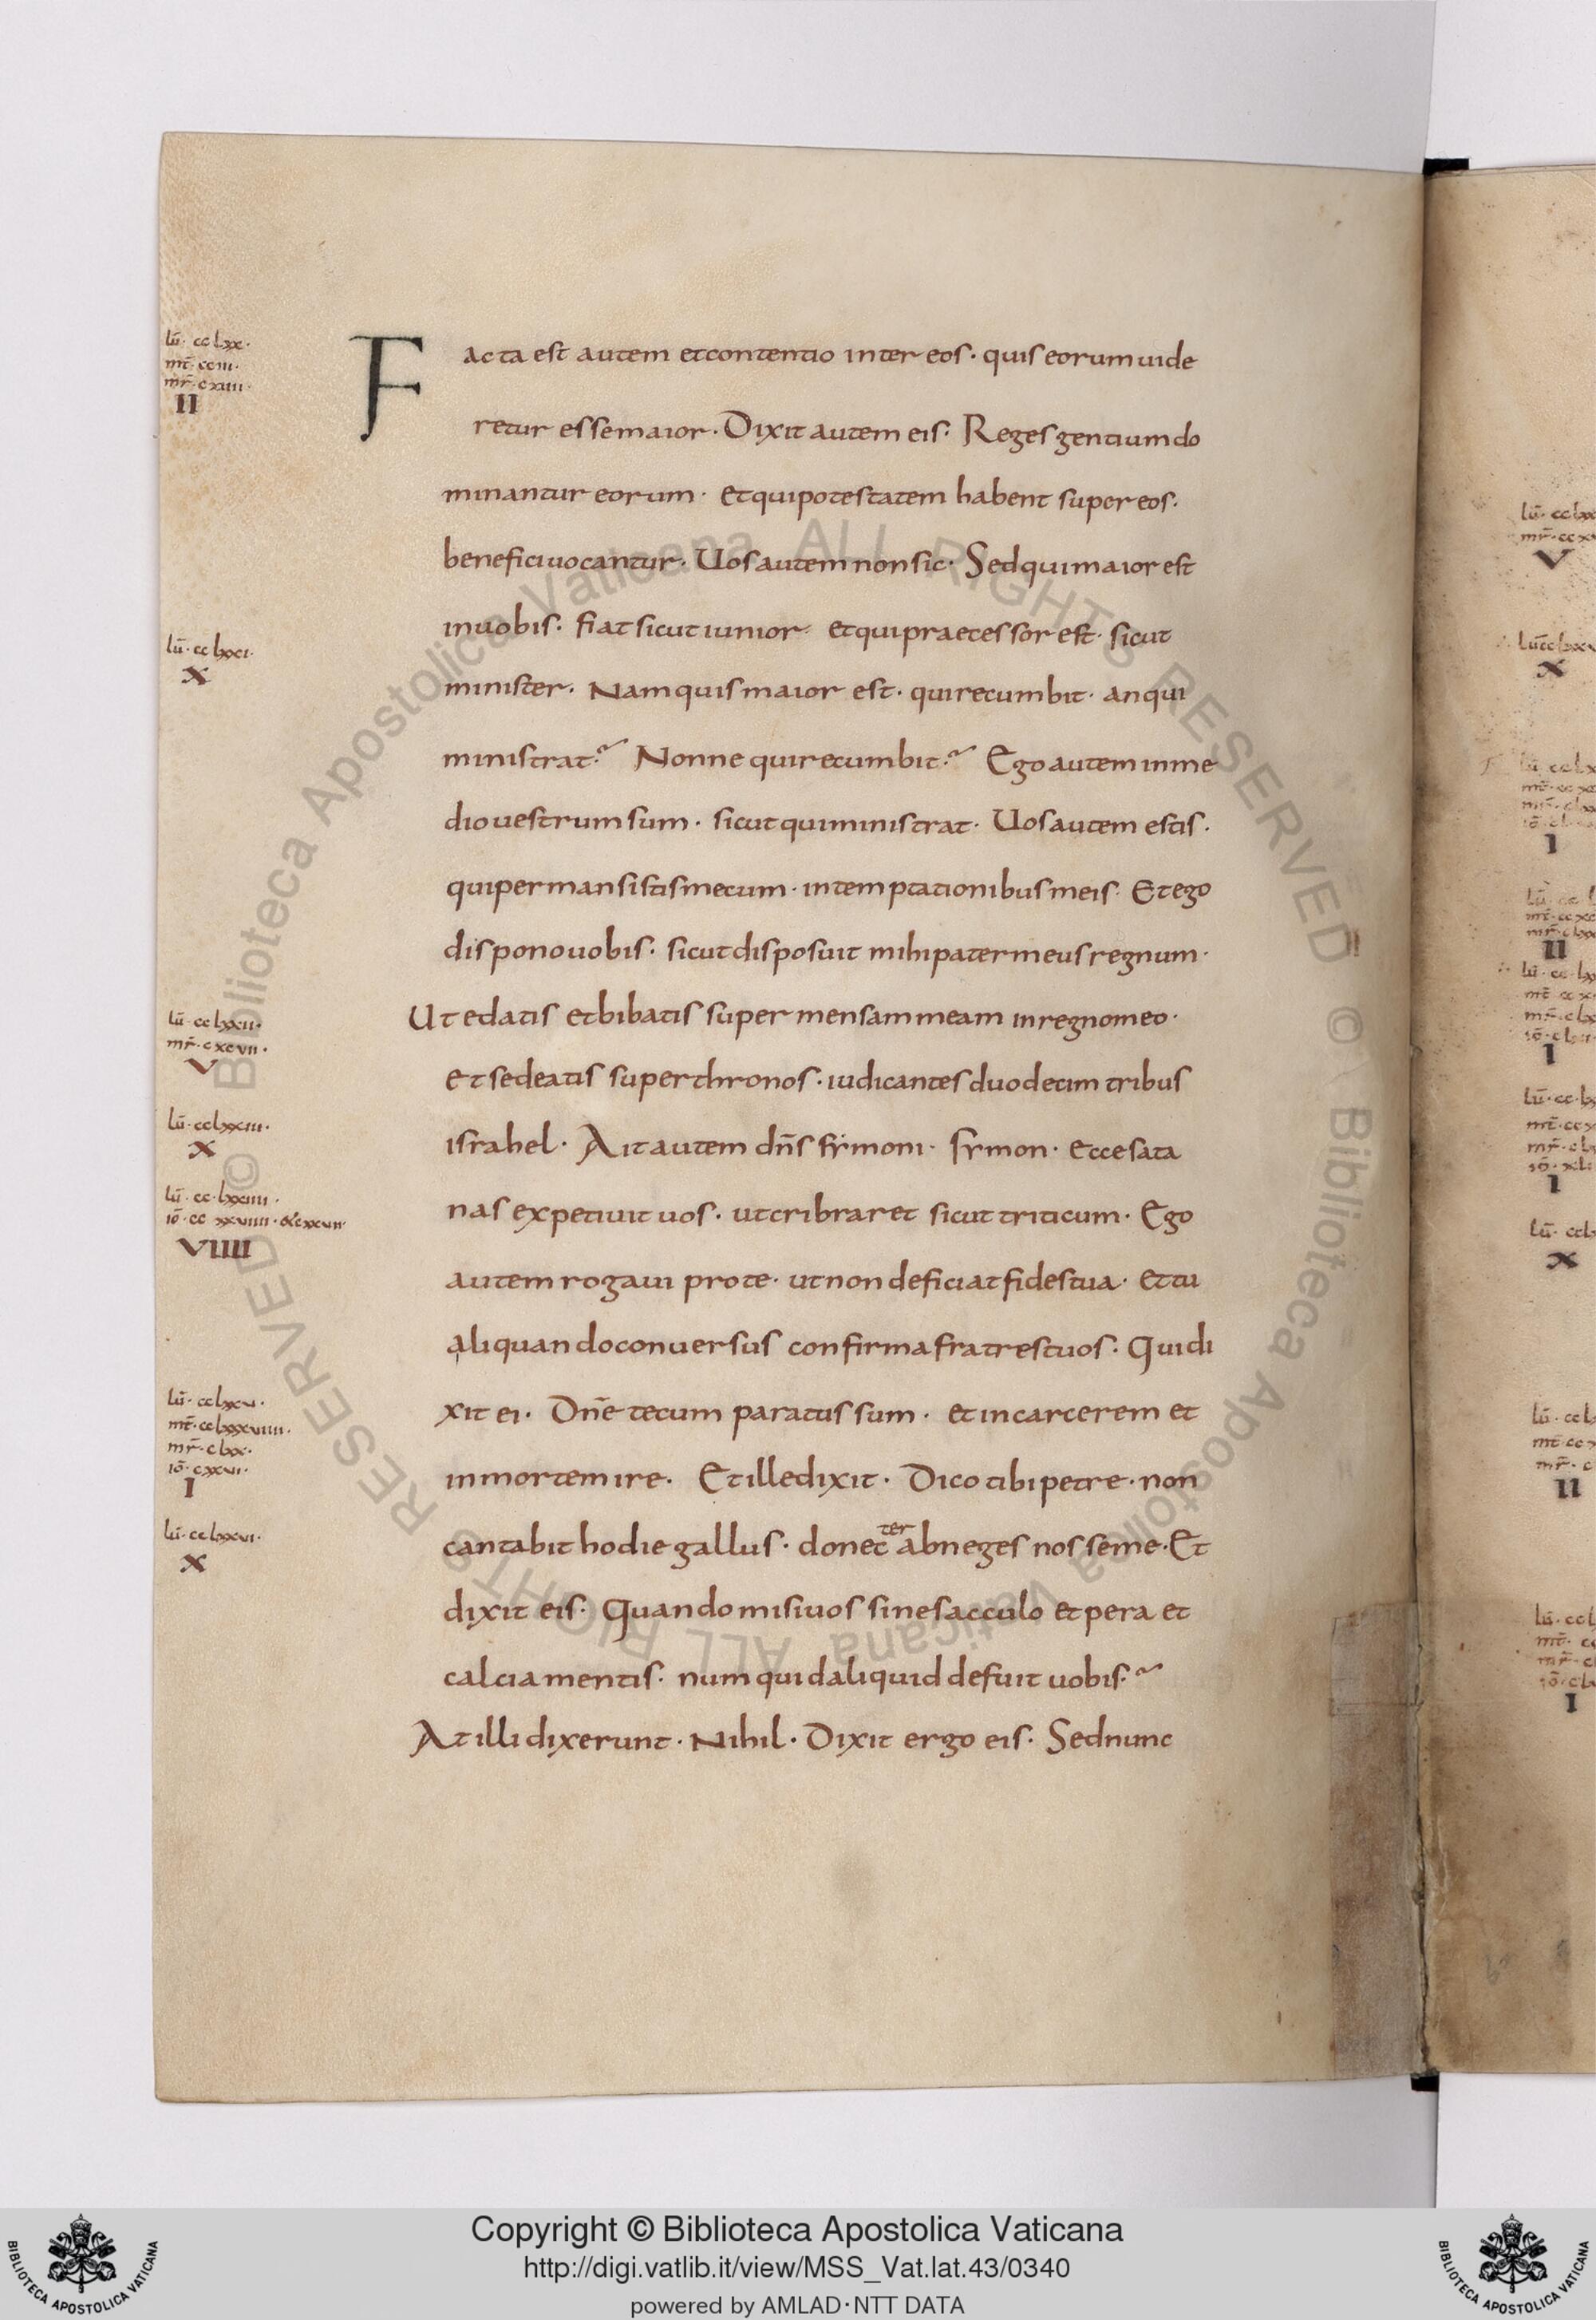 lū · cc lxx ·
mt̄ · cciii ·
mr̄ · cxiiii ·
II
Facta est autem et contentio inter eos · quis eorum uide
retur esse maior · Dixit autem eis · Reges gentium do
minantur eorum · et qui potestatem habent super eos ·
benefici uocantur · Uos autem non sic · Sed qui maior est
in uobis · fiat sicut iunior · et qui praecessor est · sicut
lū · cc lxxi ·
X
minister · Nam quis maior est · qui recumbit · an qui
ministrat? Nonne qui recumbit? Ego autem in me
dio uestrum sum · sicut qui ministrat · Uos autem estis ·
qui permansistis mecum · in temptationibus meis · Et ego
dispono uobis · sicut disposuit mihi pater meus regnum ·
lū · cc lxxii ·
mr̄ · cxcvii ·
V
Ut edatis et bibatis super mensam meam in regno meo ·
et sedeatis super thronos · iudicantes duodecim tribus
lū · cc lxxiii ·
X
israhel · Ait autem dn̄s symoni · symon · ecce sata
lū · cc · lxxiiii ·
iō · cc xxviiii ·
VIIII
nas expetiuit uos · ut cribraret sicut triticum · Ego
autem rogaui pro te · ut non deficiat fides tua · et tu
aliquando conuersus confirma fratres tuos · Qui di
lū · cc lxxv ·
mt̄ · cc lxxxviiii ·
mr̄ · c lxx ·
iō · cxxvi ·
I
xit ei · Dn̄e tecum paratus sum · et in carcerem et
in mortem ire · Et ille dixit · Dico tibi petre · non
lū · cc lxxvi ·
X
cantabit hodie gallus · donec ter abneges nosse me · Et
dixit eis · Quando misi uos sine sacculo et pera et
calciamentis · numquid aliquid defuit uobis?
At illi dixerunt · Nihil · Dixit ergo eis · Sed nunc
© Biblioteca Apostolica Vaticana ALL RIGHTS RESERVED © Biblioteca Apostolica Vaticana ALL RIGHTS RESERVED
V
X
I
II
I
I
X
II
I
BIBLIOTECA APOSTOLICA VATICANA
Copyright © Biblioteca Apostolica Vaticana
http://digi.vatlib.it/view/MSS_Vat.lat.43/0340
powered by AMLAD·NTT DATA
BIBLIOTECA APOSTOLICA VATICANA